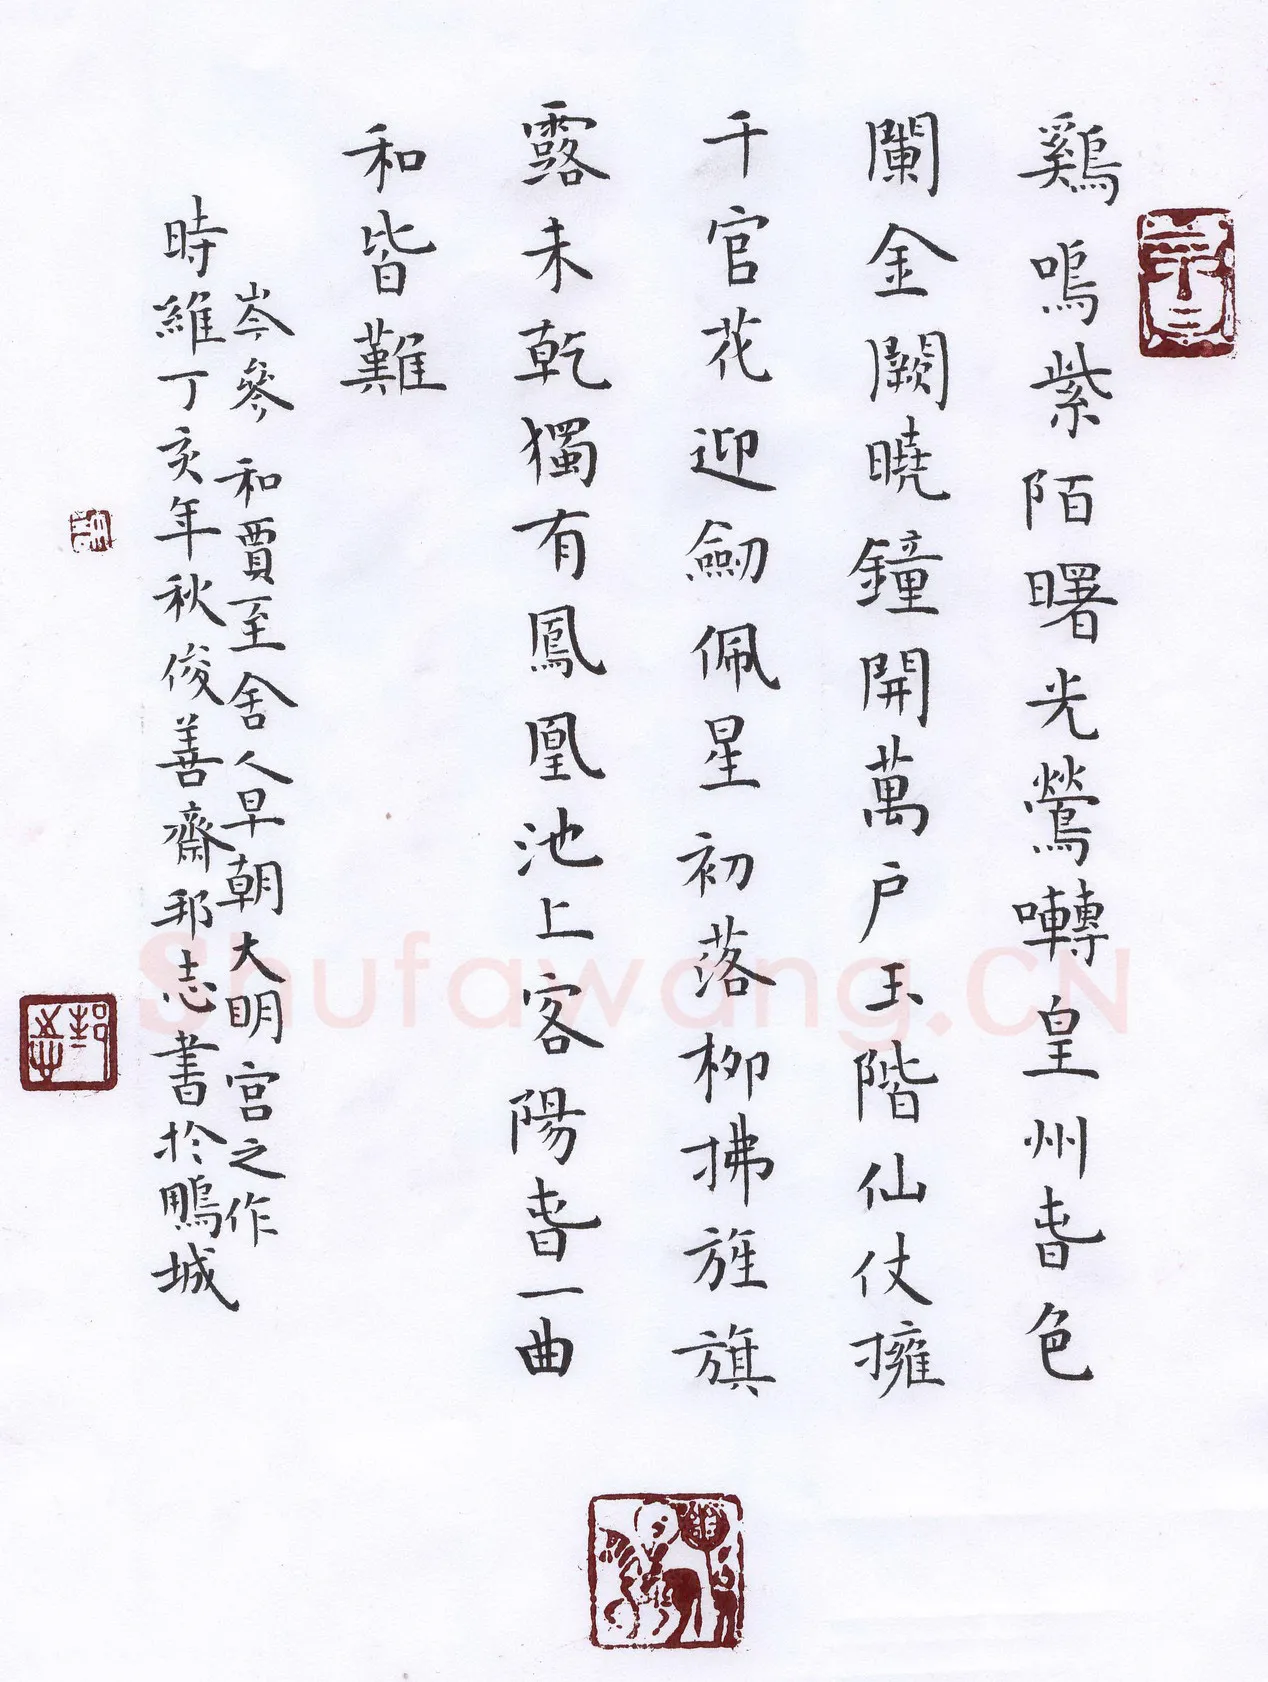 鷄鳴紫陌曙光鶯囀皇州旾色
闌金闕曉鐘開萬户玉階仙仗擁
千官花迎劒佩星初落柳拂旌旗
露未乾獨有鳳凰池上客陽旾一曲
和皆難
岑參和賈至舍人早朝大明宮之作
時維丁亥年秋俊善齋邦志書於鵬城
邦志
Shufawang.CN